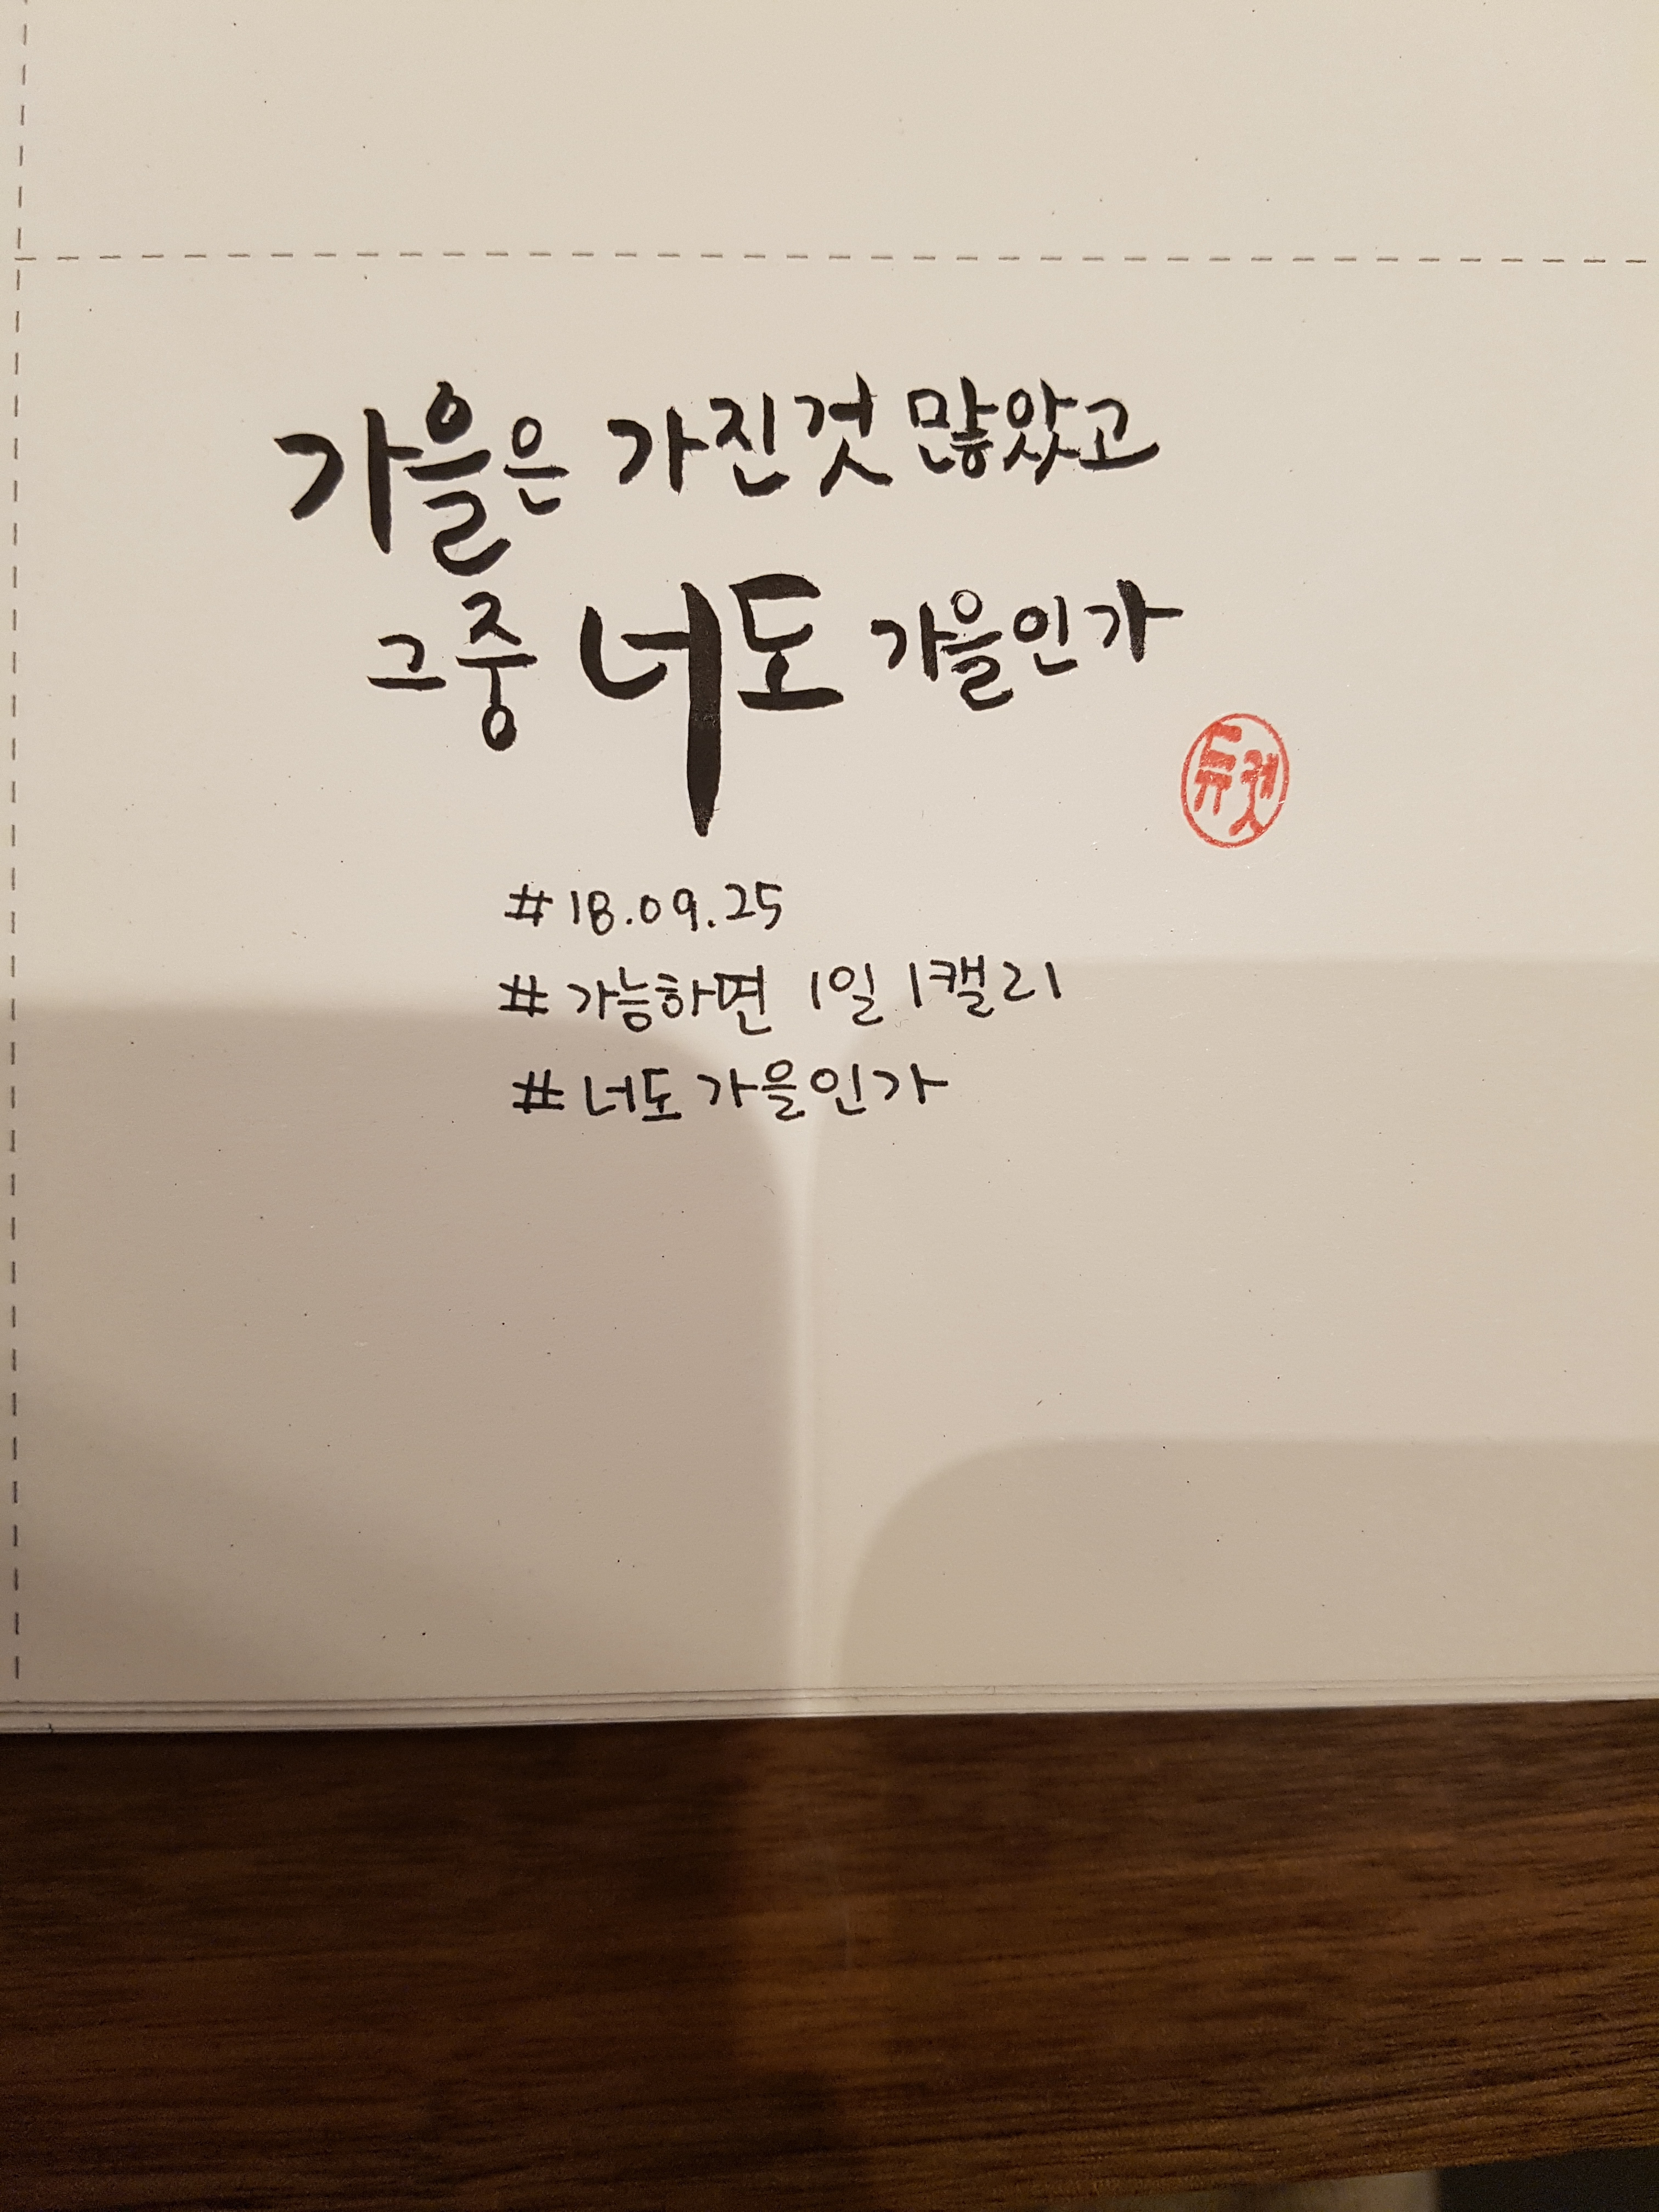 가을은 가진것 많았고
그중 너도 가을인가
#18.09.25
#가능하면 1일 1캘리
#너도 가을인가